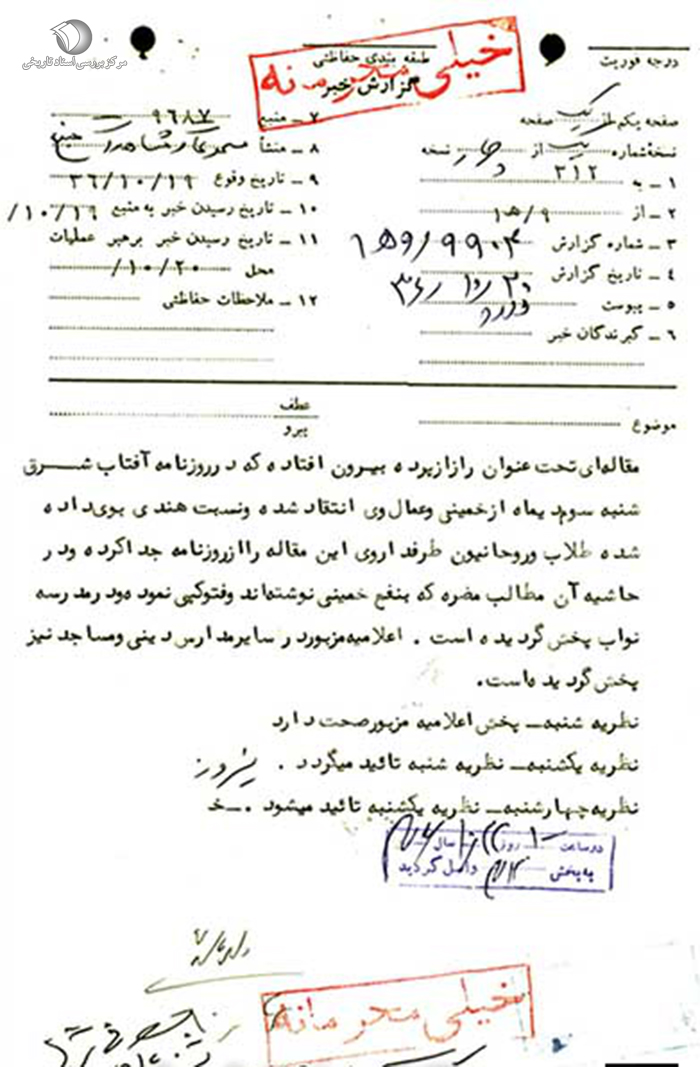 مرکز بررسی اسناد تاریخی
درجه فوریت
طبقه بندی حفاظتی
خیلی محرمانه
گزارش خبر
صفحه یکم از یک صفحه
نسخهٔ شماره یک از چهار نسخه
۱ ـ به ۳۱۲
۲ ـ از ۹/ه۱
۳ ـ شماره گزارش ۹۹۰۴/۹ه۱
۴ ـ تاریخ گزارش
۵ ـ پیوست
۶ ـ گیرندگان خبر
۷ ـ منبع ۹۶۸۷
۸ ـ منشأ
۹ ـ تاریخ وقوع ۳۶/۱۰/۱۹
۱۰ ـ تاریخ رسیدن خبر به منبع ۱۰/۱۹/
۱۱ ـ تاریخ رسیدن خبر برهبر عملیات
محل ۱۰/۲۰/
۱۲ ـ ملاحظات حفاظتی
موضوع
عطف
پیرو
مقاله‌ای تحت عنوان راز از پرده بیرون افتاده که در روزنامه آفتاب شرق
شنبه سوم دیماه از خمینی و عمال وی انتقاد شده و نسبت هندی بوی داده
شده طلاب و روحانیون طرفدار وی این مقاله را از روزنامه جدا کرده و در
حاشیه آن مطالب مضره که بنفع خمینی نوشته‌اند و فتوکپی نموده و در مدرسه
نواب پخش گردیده است . اعلامیه مزبور در سایر مدارس دینی و مساجد نیز
پخش گردیده است.
نظریه شنبه ـ پخش اعلامیه مزبور صحت دارد
نظریه یکشنبه ـ نظریه شنبه تائید میگردد .
نظریه چهارشنبه ـ نظریه یکشنبه تائید میشود . ـ خ
در ساعت ۱۰ روز سال
به بخش واصل گردید
خیلی محرمانه